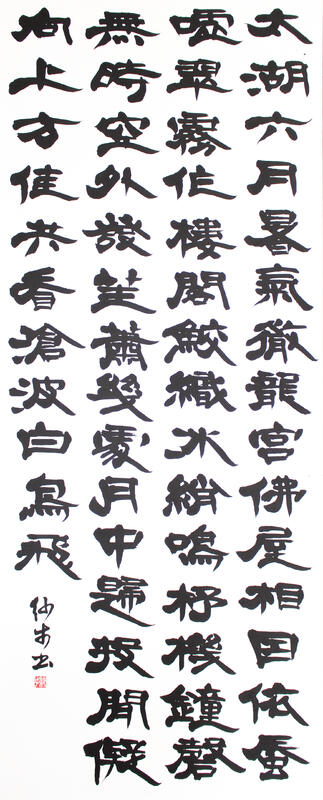 太湖六月暑氣微龍宮佛屋相因依蜃
噓翠霧作樓閣鮫織水綃鳴杼機鐘磬
無時空外發笙蕭幾處月中歸投閒儗
向上方住共看滄波白鳥飛
書